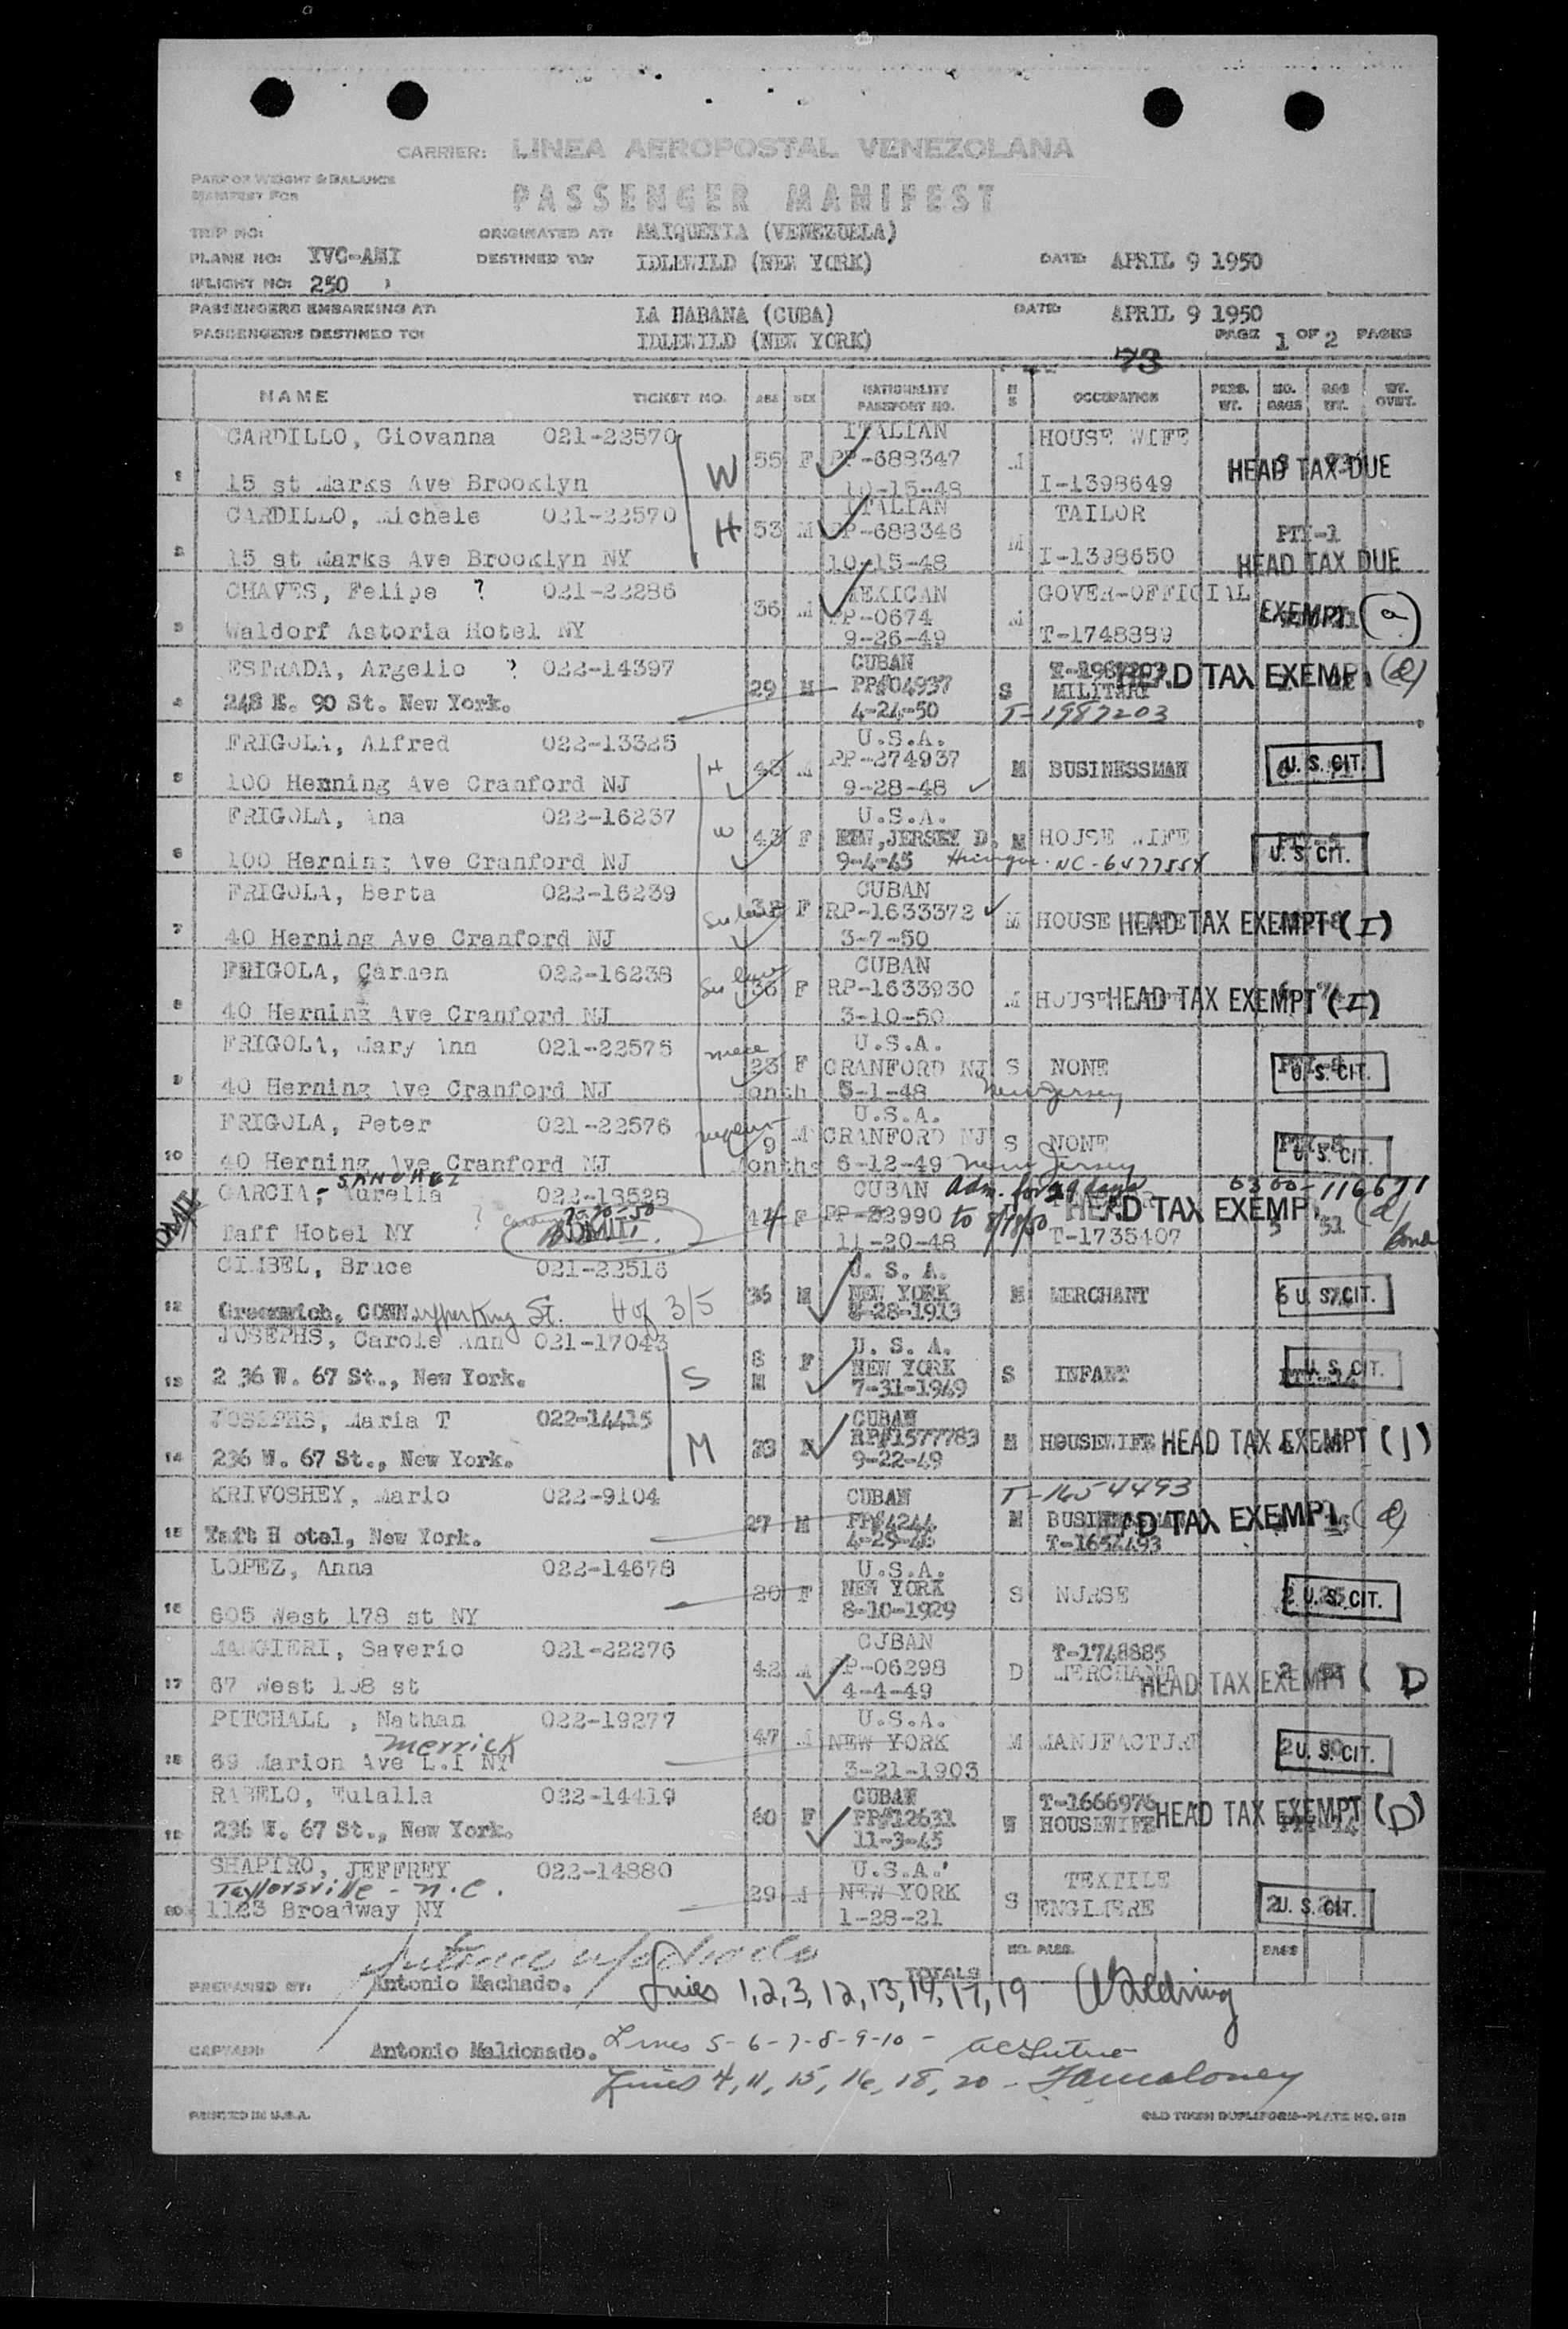 CARRIER: LINEA AEROPOSTAL VENEZOLANA
PART OF WEIGHT & BALANCE
MANIFEST FOR
PASSENGER MANIFEST
TRIP NO:
ORIGINATED AT: MAIQUETIA (VENEZUELA)
PLANE NO: YVC-AMI
DESTINED TO: IDLEWILD (NEW YORK)
DATE: APRIL 9 1950
FLIGHT NO: 250
PASSENGERS EMBARKING AT: LA HABANA (CUBA)
DATE: APRIL 9 1950
PASSENGERS DESTINED TO: IDLEWILD (NEW YORK)
PAGE 1 OF 2 PAGES
73
NAME TICKET NO. AGE SEX NATIONALITY PASSPORT NO. M S OCCUPATION PERS. WT. NO. BAGS BAG WT. WT. OVWT.
CARDILLO, Giovanna 021-22570 ITALIAN HOUSE WIFE
1 W 55 F PP-688347 M HEAD TAX DUE
15 st Marks Ave Brooklyn 10-15-48 I-1398649
CARDILLO, Michele 021-22570 ITALIAN TAILOR
2 H 53 M PP-688346 M PTY-1
15 st Marks Ave Brooklyn NY 10-15-48 I-1398650 HEAD TAX DUE
CHAVES, Felipe ? 021-22286 MEXICAN GOVER-OFFICIAL
3 36 M PP-0674 M EXEMPT (a)
Waldorf Astoria Hotel NY 9-26-49 T-1748889
ESTRADA, Argelio ? 022-14397 CUBAN T-1987203
4 29 M PP#04937 S MILITARY HEAD TAX EXEMPT (d)
248 E. 90 St. New York. 4-24-50 T-1987203
FRIGOLA, Alfred 022-13325 U.S.A.
5 H 48 M PP-274937 M BUSINESSMAN U. S. CIT.
100 Herning Ave Cranford NJ 9-28-48
FRIGOLA, Ana 022-16237 U.S.A.
6 W 43 F NEW JERSEY D. M HOUSE WIFE U. S. CIT.
100 Herning Ave Cranford NJ 9-4-45 NC-6477554
FRIGOLA, Berta 022-16239 CUBAN
7 Sis law F RP-1633372 M HOUSE HEAD TAX EXEMPT (I)
40 Herning Ave Cranford NJ 3-7-50
FRIGOLA, Carmen 022-16238 CUBAN
8 Sis law 36 F RP-1633930 M HOUSE HEAD TAX EXEMPT (I)
40 Herning Ave Cranford NJ 3-10-50
FRIGOLA, Mary Ann 021-22575 U.S.A.
9 niece 23 F CRANFORD NJ S NONE U. S. CIT.
40 Herning Ave Cranford NJ Month 5-1-48 New Jersey
FRIGOLA, Peter 021-22576 U.S.A.
10 nephew 9 M CRANFORD NJ S NONE U. S. CIT.
40 Herning Ave Cranford NJ Months 6-12-49 New Jersey
SANCHEZ
GARCIA, Aurelia 022-18528 CUBAN Adm. for 29 days 0300-116671
ADMIT ? 44 F PP-22990 to HEAD TAX EXEMPT (d)
Taff Hotel NY ADMIT 11-20-48 T-1735407 Bond
GIMBEL, Bruce 021-22516 U. S. A.
12 36 M NEW YORK M MERCHANT U. S. CIT.
Greenwich, CONN. upper King St. H of 3/5 -28-1913
JOSEPHS, Carole Ann 021-17043 U. S. A.
13 S 8 M F NEW YORK S INFANT U. S. CIT.
2 36 W. 67 St., New York. 7-31-1949
JOSEPHS, Maria T 022-14415 CUBAN
14 M F RP#1577783 M HOUSEWIFE HEAD TAX EXEMPT (J)
236 W. 67 St., New York. 9-22-49
KRIVOSHEY, Mario 022-9104 CUBAN T-1654493
15 27 M PP#4244 M BUSINESSMAN HEAD TAX EXEMPT (d)
Taft H otel, New York. 4-29-48 T-1654493
LOPEZ, Anna 022-14678 U.S.A.
16 20 F NEW YORK S NURSE U. S. CIT.
605 West 178 st NY 8-10-1929
MAUGIERI, Saverio 021-22276 CUBAN T-1748885
17 42 M PP-06298 D MERCHANT HEAD TAX EXEMPT (D
67 West 108 st 4-4-49
PITCHALL , Nathan 022-19277 U.S.A.
Merrick
18 47 M NEW YORK M MANUFACTURE U. S. CIT.
69 Marion Ave L.I NY 3-21-1903
RABELO, Eulalia 022-14419 CUBAN T-1666976
19 60 F PP#12631 W HOUSEWIFE HEAD TAX EXEMPT (D)
236 W. 67 St., New York. 11-3-45
SHAPIRO, JEFFREY 022-14880 U.S.A. TEXTILE
Taylorsville - N.C.
20 29 M NEW YORK S ENGINERE U. S. CIT.
1123 Broadway NY 1-28-21
NO. PASS. BAGS
PREPARED BY: Antonio Machado. TOTALS
Lines 1,2,3,12,13,14,17,19
CAPTAIN: Antonio Maldonado. Lines 5-6-7-8-9-10-
Lines 4, 11, 15, 16, 18, 20 -
PRINTED IN U.S.A.
OLD TOWN DUPLIFORM-PLATE NO. 913